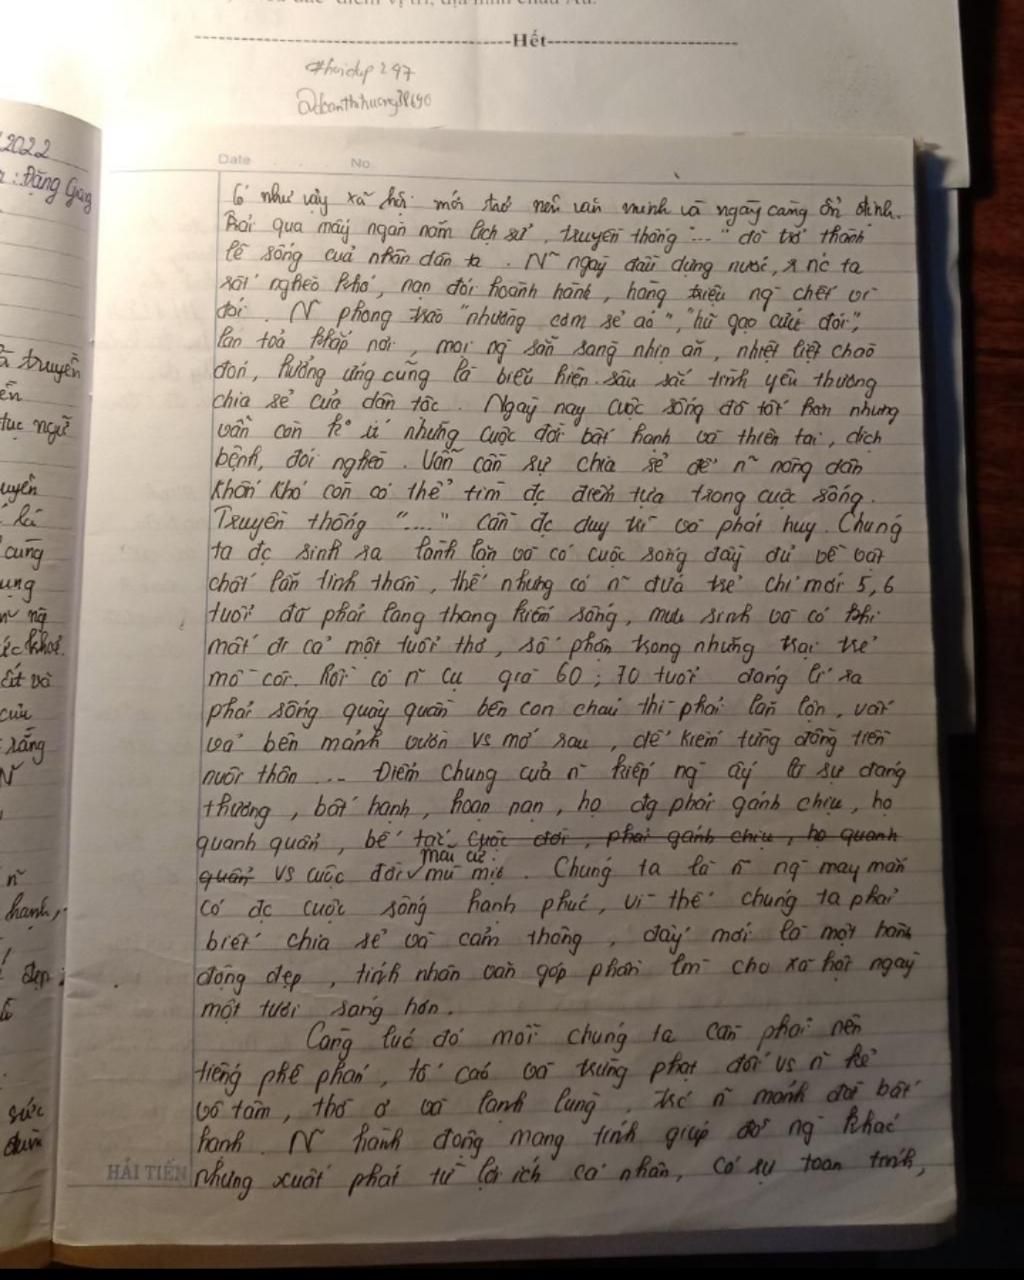 -Hết-
#hoidap247
@doanthihuong38690
2022
: Đặng Giang
Date No
Có như vậy xã hội mới trở nên văn minh và ngày càng ổn định.
Trải qua mấy ngàn năm lịch sử, truyền thống "...." đó trở thành
lẽ sống của nhân dân ta. Ng̃ ngày đầu dựng nước, nc ta
rất nghèo khó, nạn đói hoành hành, hàng triệu ng chết vì
đói. N̄ phong trào "nhường cơm sẻ áo", "hũ gạo cứu đói",
lan toả khắp nơi, mọi ng sẵn sàng nhịn ăn, nhiệt liệt chào
đón, hưởng ứng cũng là biểu hiện sâu sắc tình yêu thương
chia sẻ của dân tộc. Ngày nay cuộc sống đã tốt hơn nhưng
vẫn còn k ít những cuộc đời bất hạnh và thiên tai, dịch
bệnh, đói nghèo. Vẫn cần sự chia sẻ để n̄ nông dân
khốn khó còn có thể tìm đc điểm tựa trong cuộc sống.
Truyền thống "....." cần đc duy trì và phát huy. Chúng
ta đc sinh ra lành lặn và có cuộc sống đầy đủ về vật
chất lẫn tinh thần, thế nhưng có n̄ đứa trẻ chỉ mới 5,6
tuổi đã phải lang thang kiếm sống, mưu sinh và có khi
mất đi cả một tuổi thơ, số phận trong những trại trẻ
mồ côi. Rồi có n̄ cụ già 60; 70 tuổi đáng lí ra
phải sống quây quần bên con cháu thì phải lăn lộn, vất
vả bên mảnh vườn vs mớ rau, để kiếm từng đồng tiền
nuôi thân ... Điểm chung của n̄ kiếp ng ấy là sự đáng
thương, bất hạnh, hoạn nạn, họ đg phải gánh chịu, họ
quanh quẩn, bế tắc cuộc đời, phải gánh chịu, họ quanh
quẩn vs cuộc đời mù mịt. Chúng ta là n̄ ng may mắn
có đc cuộc sống hạnh phúc, vì thế chúng ta phải
biết chia sẻ và cảm thông, đấy mới là một hành
động đẹp, tính nhân văn góp phần làm cho xã hội ngày
một tươi sáng hơn.
Cùng lúc đó mỗi chúng ta cần phải lên
tiếng phê phán, tố cáo và trừng phạt đối vs n̄ kẻ
vô tâm, thờ ơ và lạnh lùng, trc n̄ mảnh đời bất
hạnh. N̄ hành động mang tính giúp đỡ ng khác
nhưng xuất phát từ lợi ích cá nhân, có sự toan tính,
HẢI TIẾN